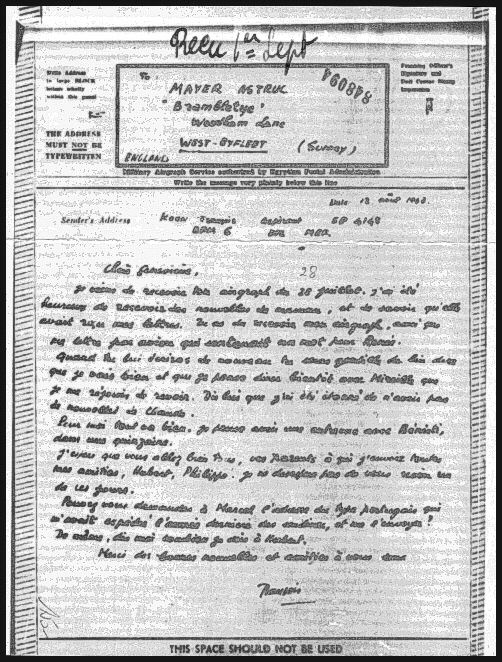 Recu 1er Sept
Write Address
in large BLOCK
letters wholly
within this panel
THE ADDRESS
MUST NOT BE
TYPEWRITTEN
To
MAYER ASTRUC
"Brambletye"
Woodham Lane
WEST-BYFLEET (Surrey)
ENGLAND
848094
Censoring Officer's
Signature and
Military Airgraph Service authorised by Egyptian Postal Administration
Write the message very plainly below this line
Date 13 août
Sender's Address KOCH François Aspirant
28
Je viens de recevoir ton airgraph du 28 juillet. J'ai été
heureux de recevoir des nouvelles de maman, et de savoir qu'elle
avait reçu mes lettres. Tu as dû recevoir mon airgraph, ainsi que
ma lettre par avion qui contenait un mot pour
Quand tu lui écriras de nouveau tu seras gentille de lui dire
que je vais bien et que je pense dîner bientôt avec Mireille que
je me réjouis de revoir. Dis leur que j'ai été étonné de n'avoir pas
de nouvelles de Claude.
Pour moi tout va bien. Je pense avoir une entrevue avec
dans une quinzaine.
J'espère que vous allez bien tous, vos Parents à qui j'envoie toutes
mes amitiés, Hubert, Philippe. Je ne désespère pas de vous revoir un
de ces jours.
Pouvez vous demander à Marcel l'adresse du type portugais qui
m'avait expédié l'année dernière des sardines, et me l'envoyer?
De même, dis moi combien je dois à Hubert.
Merci des bonnes nouvelles et amitiés à vous tous
François
THIS SPACE SHOULD NOT BE USED